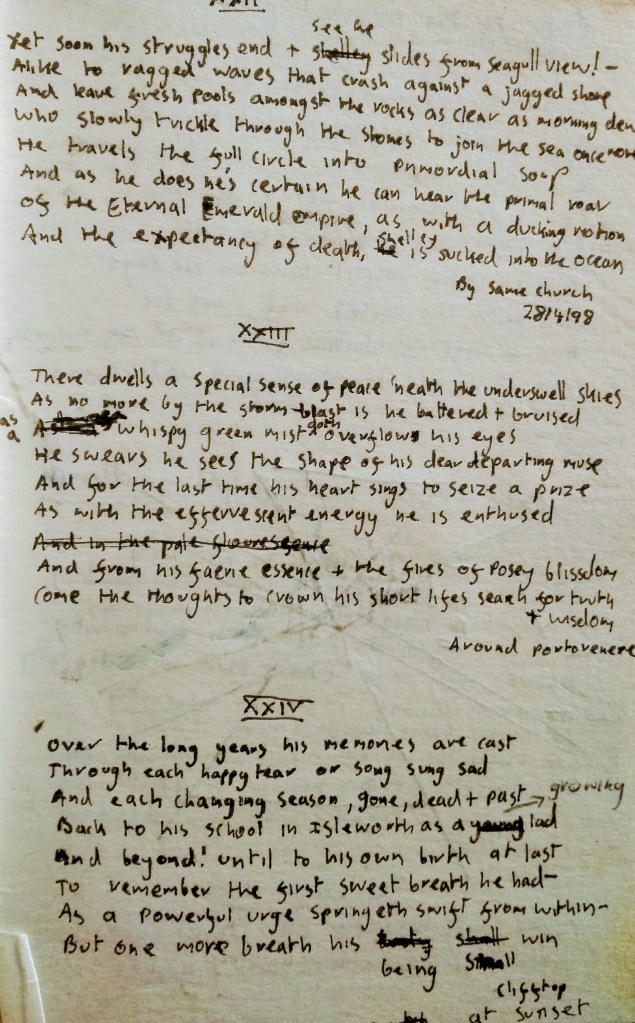 XXII
see he
Yet soon his struggles end + shelley slides from seagull view! -
Alike to ragged waves that crash against a jagged shore
And leave fresh pools amongst the rocks as clear as morning dew
Who slowly trickle through the stones to join the sea once more
He travels the full circle into primordial soup
And as he does he's certain he can hear the primal roar
Of the Eternal Emerald empire, as with a ducking motion
And the expectancy of death, he shelley is sucked into the ocean
By same church
28/4/98
XXIII
There dwells a special sense of peace 'neath the underswell skies
As no more by the storm-blast is he battered + bruised
as a whispy green mist doth overflow his eyes
He swears he sees the shape of his dear departing muse
And for the last time his heart sings to seize a prize
As with the effervescent energy he is enthused
And in the pale flouressence
And from his faerie essence + the fires of Posey blissdom
Come the thoughts to crown his short lifes search for truth
+ wisdom
Around portovenere
XXIV
Over the long years his memories are cast
Through each happy tear or song sung sad
And each changing season, gone, dead + past
growing
Back to his school in Isleworth as a young lad
And beyond! until to his own birth at last
To remember the first sweet breath he had -
As a powerful urge springeth swift from within -
But one more breath his shall win
being small
clifftop
at sunset